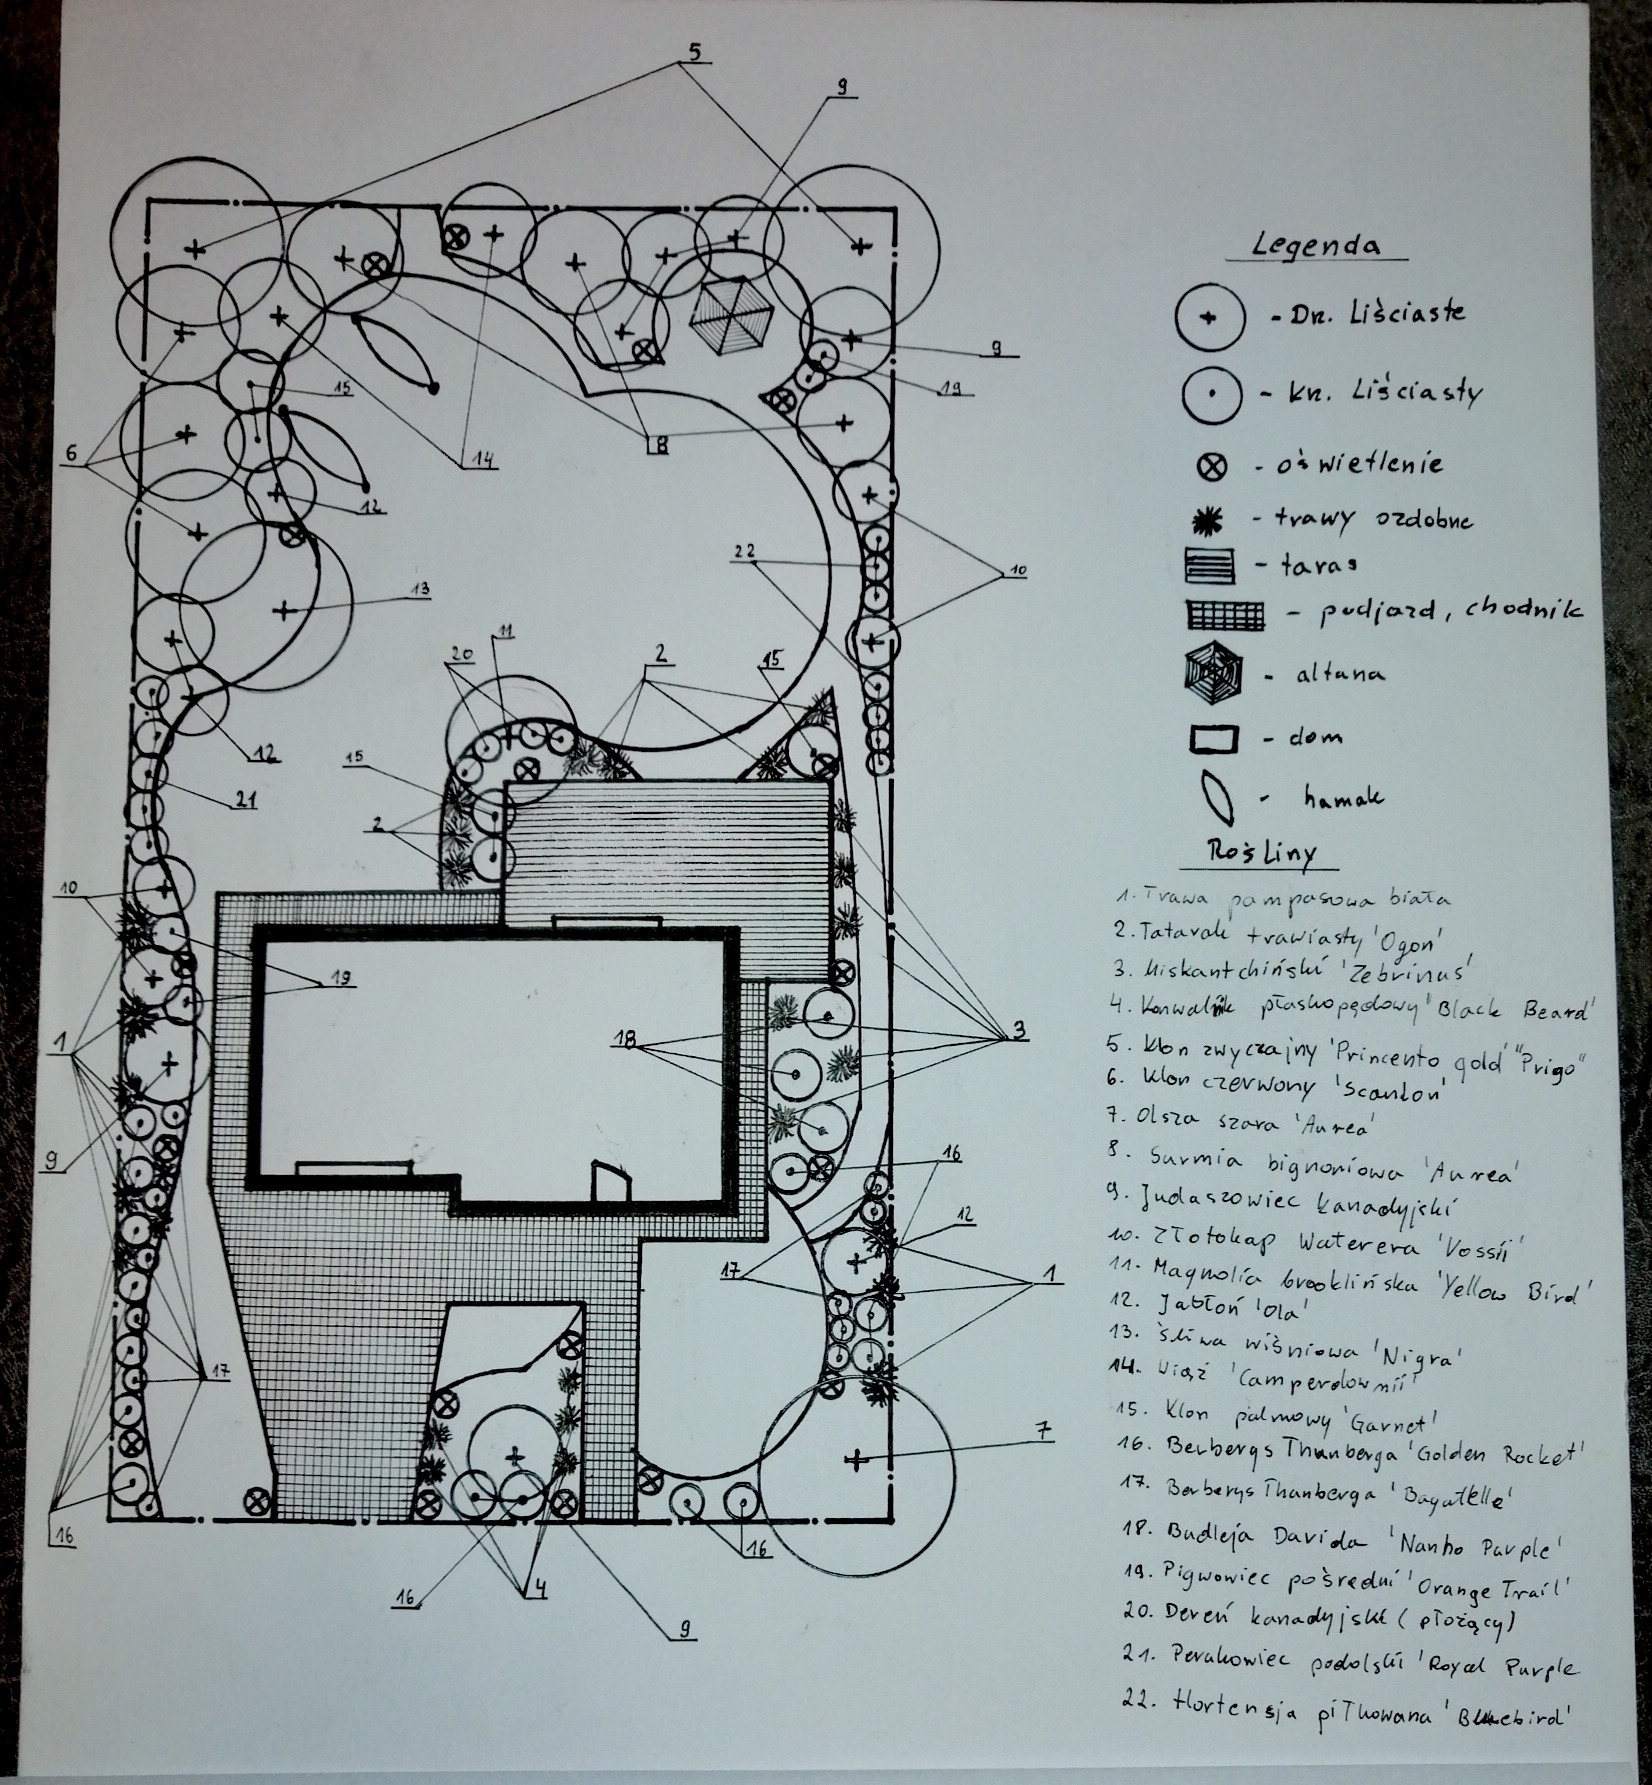 5
9
9
15
19
6
14
8
12
22
10
13
11
20
2
15
12
15
21
2
10
19
1
18
3
9
16
17
12
1
17
7
16
16
16
4
9
Legenda
- Dr. Liściaste
- kr. Liściasty
- oświetlenie
- trawy ozdobne
- taras
- podjazd, chodnik
- altana
- dom
- hamak
Rośliny
1. Trawa pampasowa biała
2. Tatarak trawiasty 'Ogon'
3. Miskant chiński 'Zebrinus'
4. Konwalnik płaskopędowy 'Black Beard'
5. Klon zwyczajny 'Princento gold' "Prigo"
6. Klon czerwony 'Scanlon'
7. Olsza szara 'Aurea'
8. Surmia bignoniowa 'Aurea'
9. Judaszowiec kanadyjski
10. Złotokap Waterera 'Vossii'
11. Magnolia brooklińska 'Yellow Bird'
12. Jabłoń 'Ola'
13. Śliwa wiśniowa 'Nigra'
14. Wiąz 'Camperdownii'
15. Klon palmowy 'Garnet'
16. Berberys Thunberga 'Golden Rocket'
17. Berberys Thunberga 'Bagatelle'
18. Budleja Davida 'Nanho Purple'
19. Pigwowiec pośredni 'Orange Trail'
20. Dereń kanadyjski (płożący)
21. Perukowiec podolski 'Royal Purple
22. Hortensja piłkowana 'Bluebird'